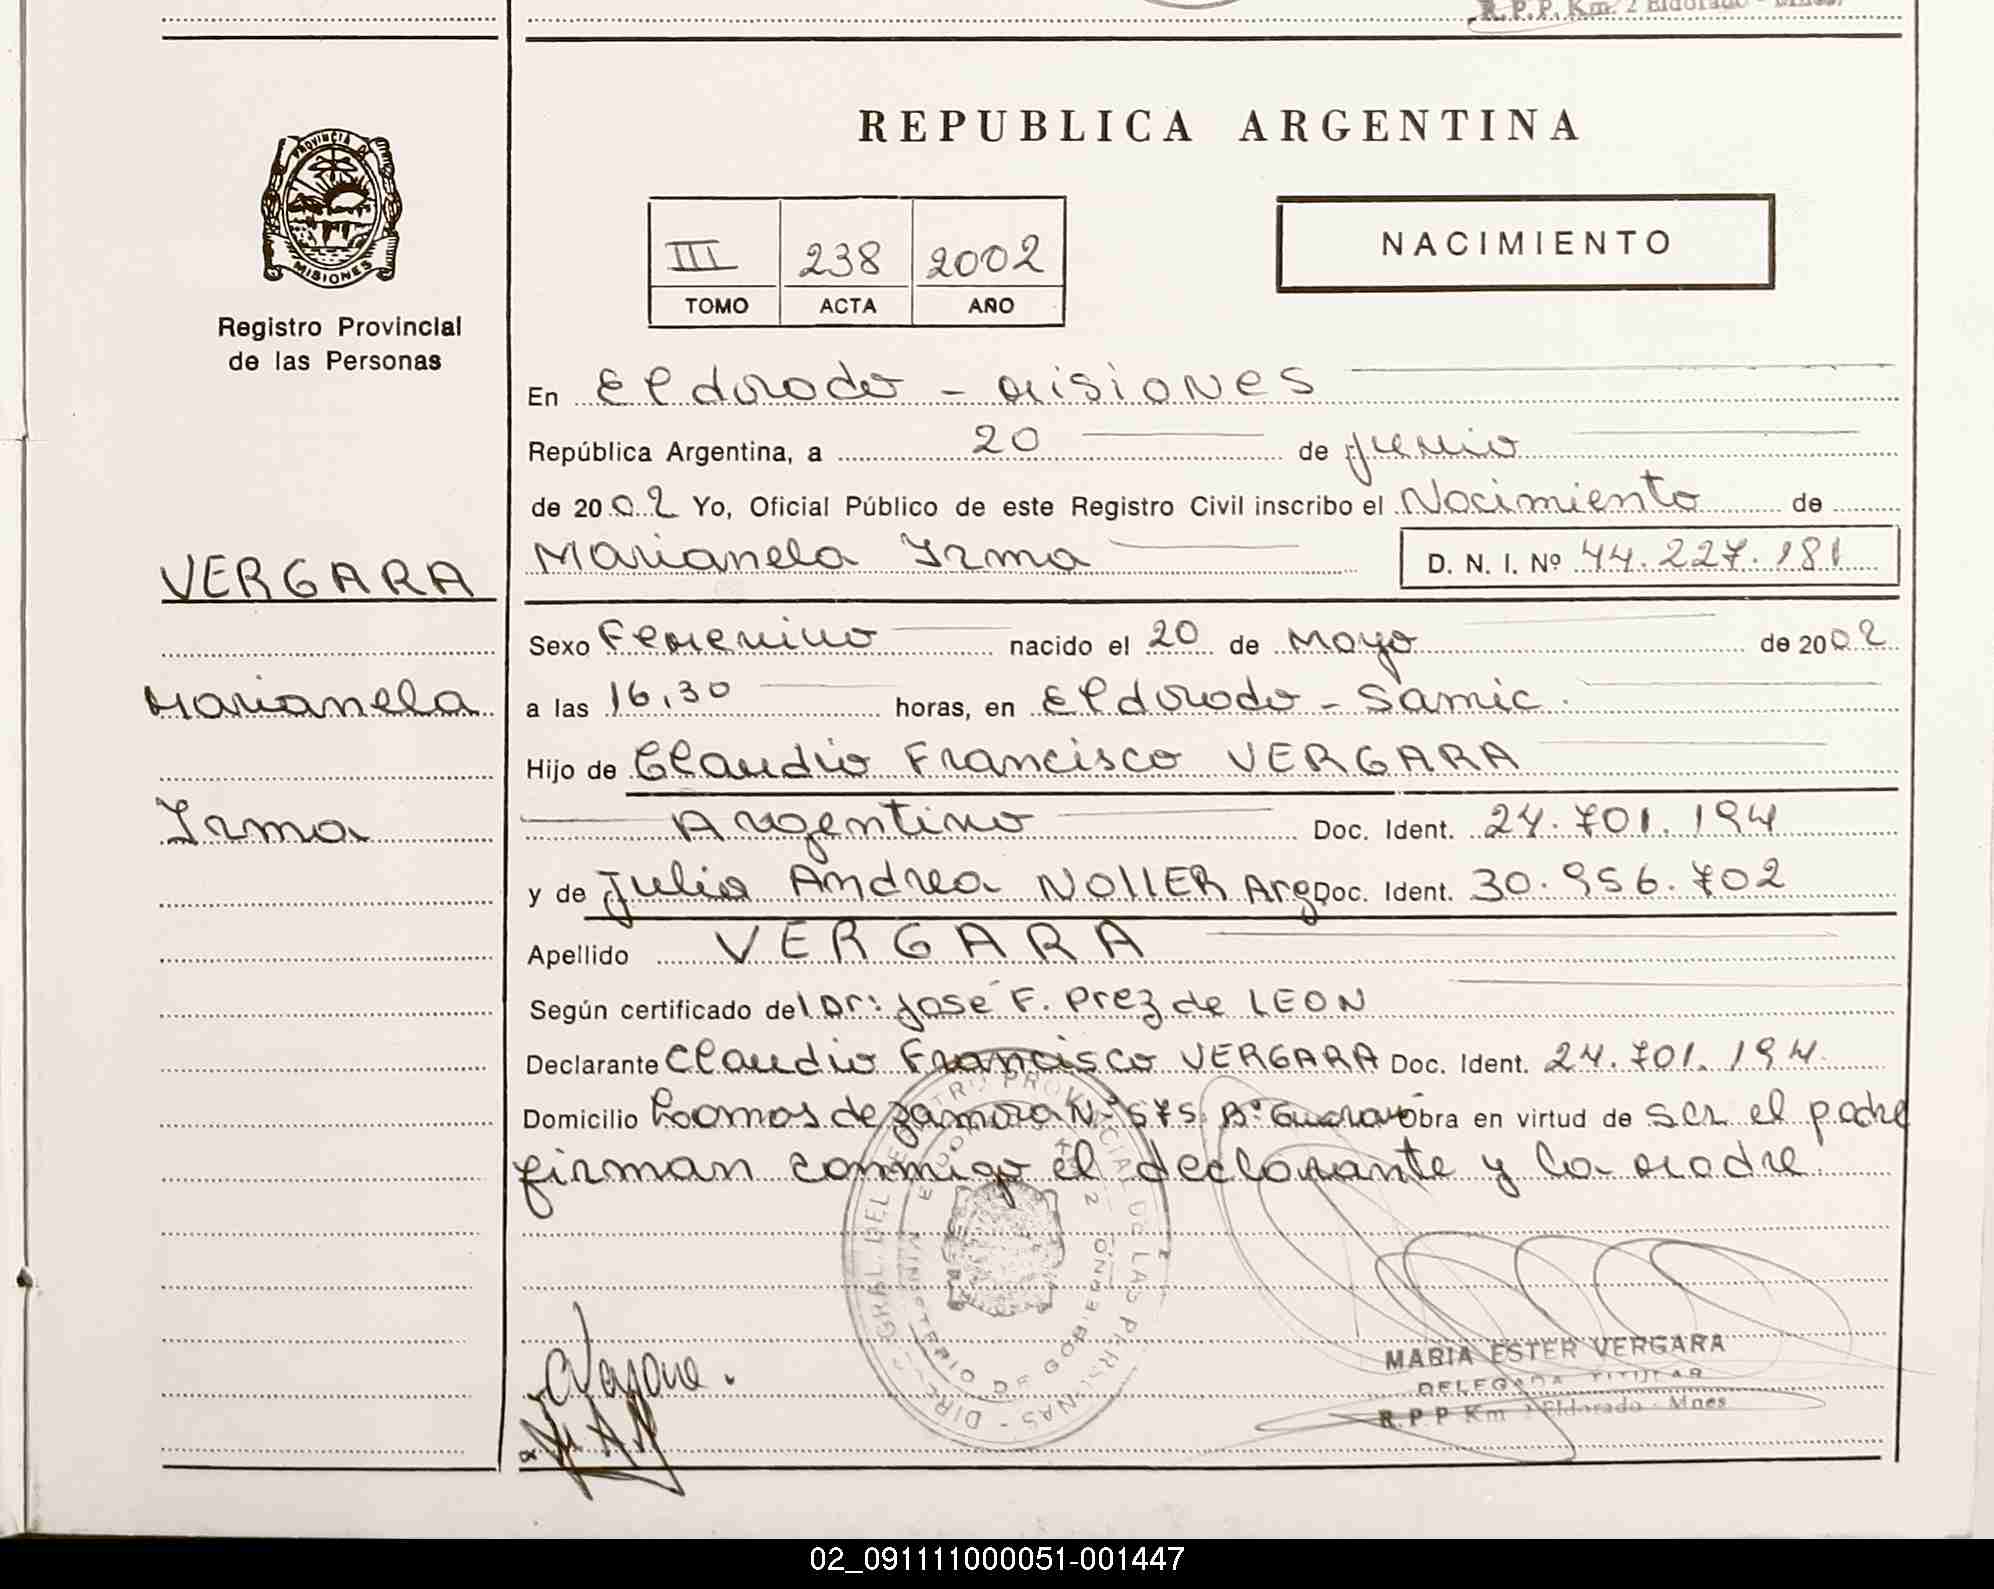 R.P.P. Km. 2 Eldorado - Mnes.
REPUBLICA ARGENTINA
PROVINCIA DE
MISIONES
Registro Provincial
de las Personas
III 238 2002
TOMO ACTA AÑO
NACIMIENTO
En Eldorado - Misiones
República Argentina, a 20 de Junio
de 2002 Yo, Oficial Público de este Registro Civil inscribo el Nacimiento de
VERGARA
Marianela Irma D. N. I. Nº 44.227.181
Sexo Femenino nacido el 20 de Mayo de 2002
Marianela
a las 16,30 horas, en Eldorado - Samic.
Hijo de Claudio Francisco VERGARA
Irma
Argentino Doc. Ident. 24.701.194
y de Julia Andrea NOLLER Arg Doc. Ident. 30.956.702
Apellido VERGARA
Según certificado del Dr: José F. Prez de LEON
Declarante Claudio Francisco VERGARA Doc. Ident. 24.701.194.
Domicilio Loomas de Zamora Nº 575 Bº Guaraní Obra en virtud de ser el padre
firman conmigo el declarante y la madre
DIR. GRAL DEL REGISTRO PROVINCIAL DE LAS PERSONAS
MINISTERIO DE GOBIERNO
MARIA ESTER VERGARA
DELEGADA TITULAR
R.P.P Km 2 Eldorado - Mnes
02_091111000051-001447